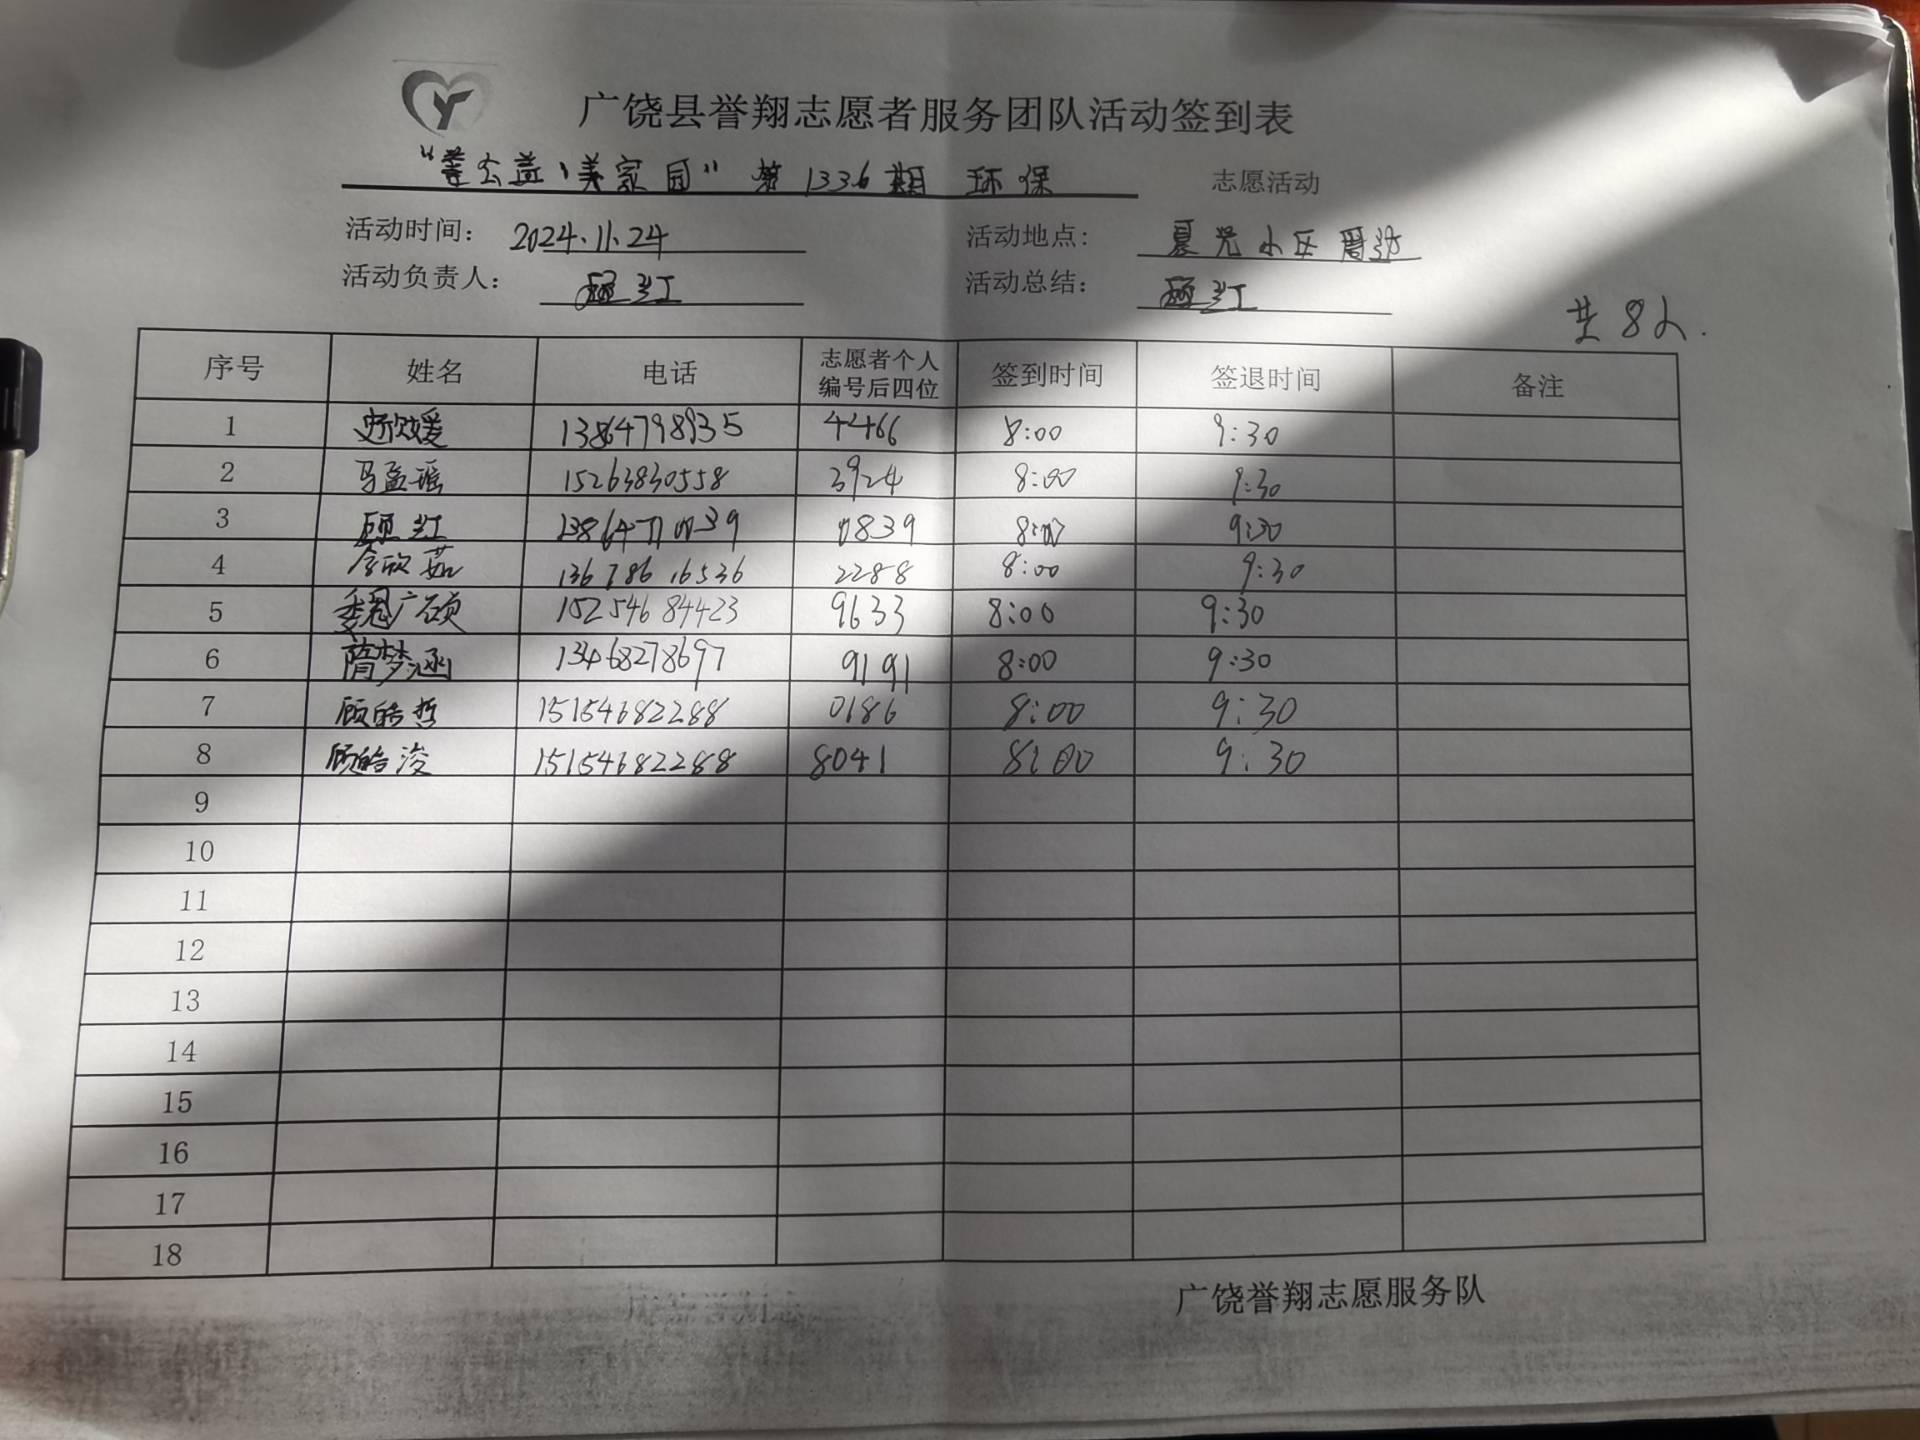 广饶县誉翔志愿者服务团队活动签到表
公益,美家园" 第1336期 环保 志愿活动
活动时间： 2024.11.24 活动地点： 小区周边
活动负责人： 顾红 活动总结： 顾红
共8人.
序号 姓名 电话 志愿者个人编号后四位 签到时间 签退时间 备注
1 13864798935 4466 8:00 9:30
2 马孟瑶 15263830558 3924 8:00 9:30
3 顾红 0839 8:00 9:30
4 13678616536 2288 8:00 9:30
5 魏广硕 15254684423 9633 8:00 9:30
6 隋梦涵 13468278697 9191 8:00 9:30
7 顾皓哲 15154682288 0186 8:00 9:30
8 顾皓浚 15154682288 8041 8:00 9:30
9
10
11
12
13
14
15
16
17
18
广饶誉翔志愿服务队